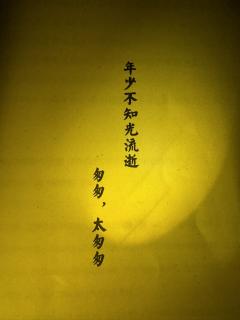 年少不知光流逝
匆匆，太匆匆